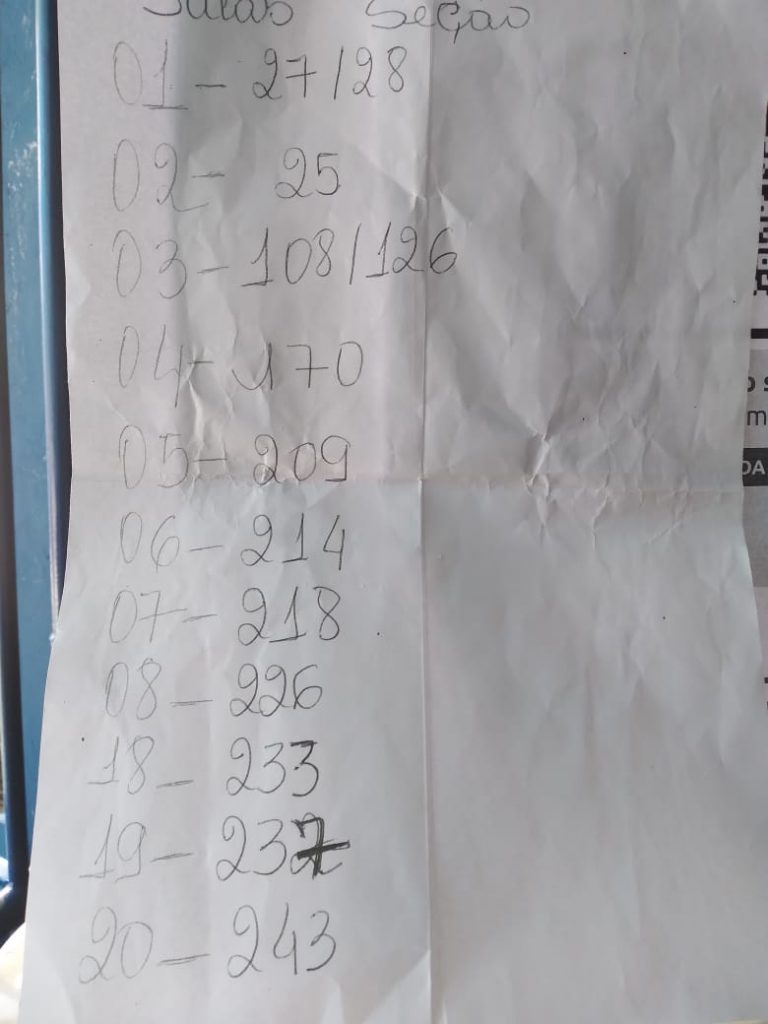 Salas Seção
01 - 27/28
02 - 25
03 - 108/126
04 - 170
05 - 209
06 - 214
07 - 218
08 - 226
18 - 233
19 - 237
20 - 243
DA